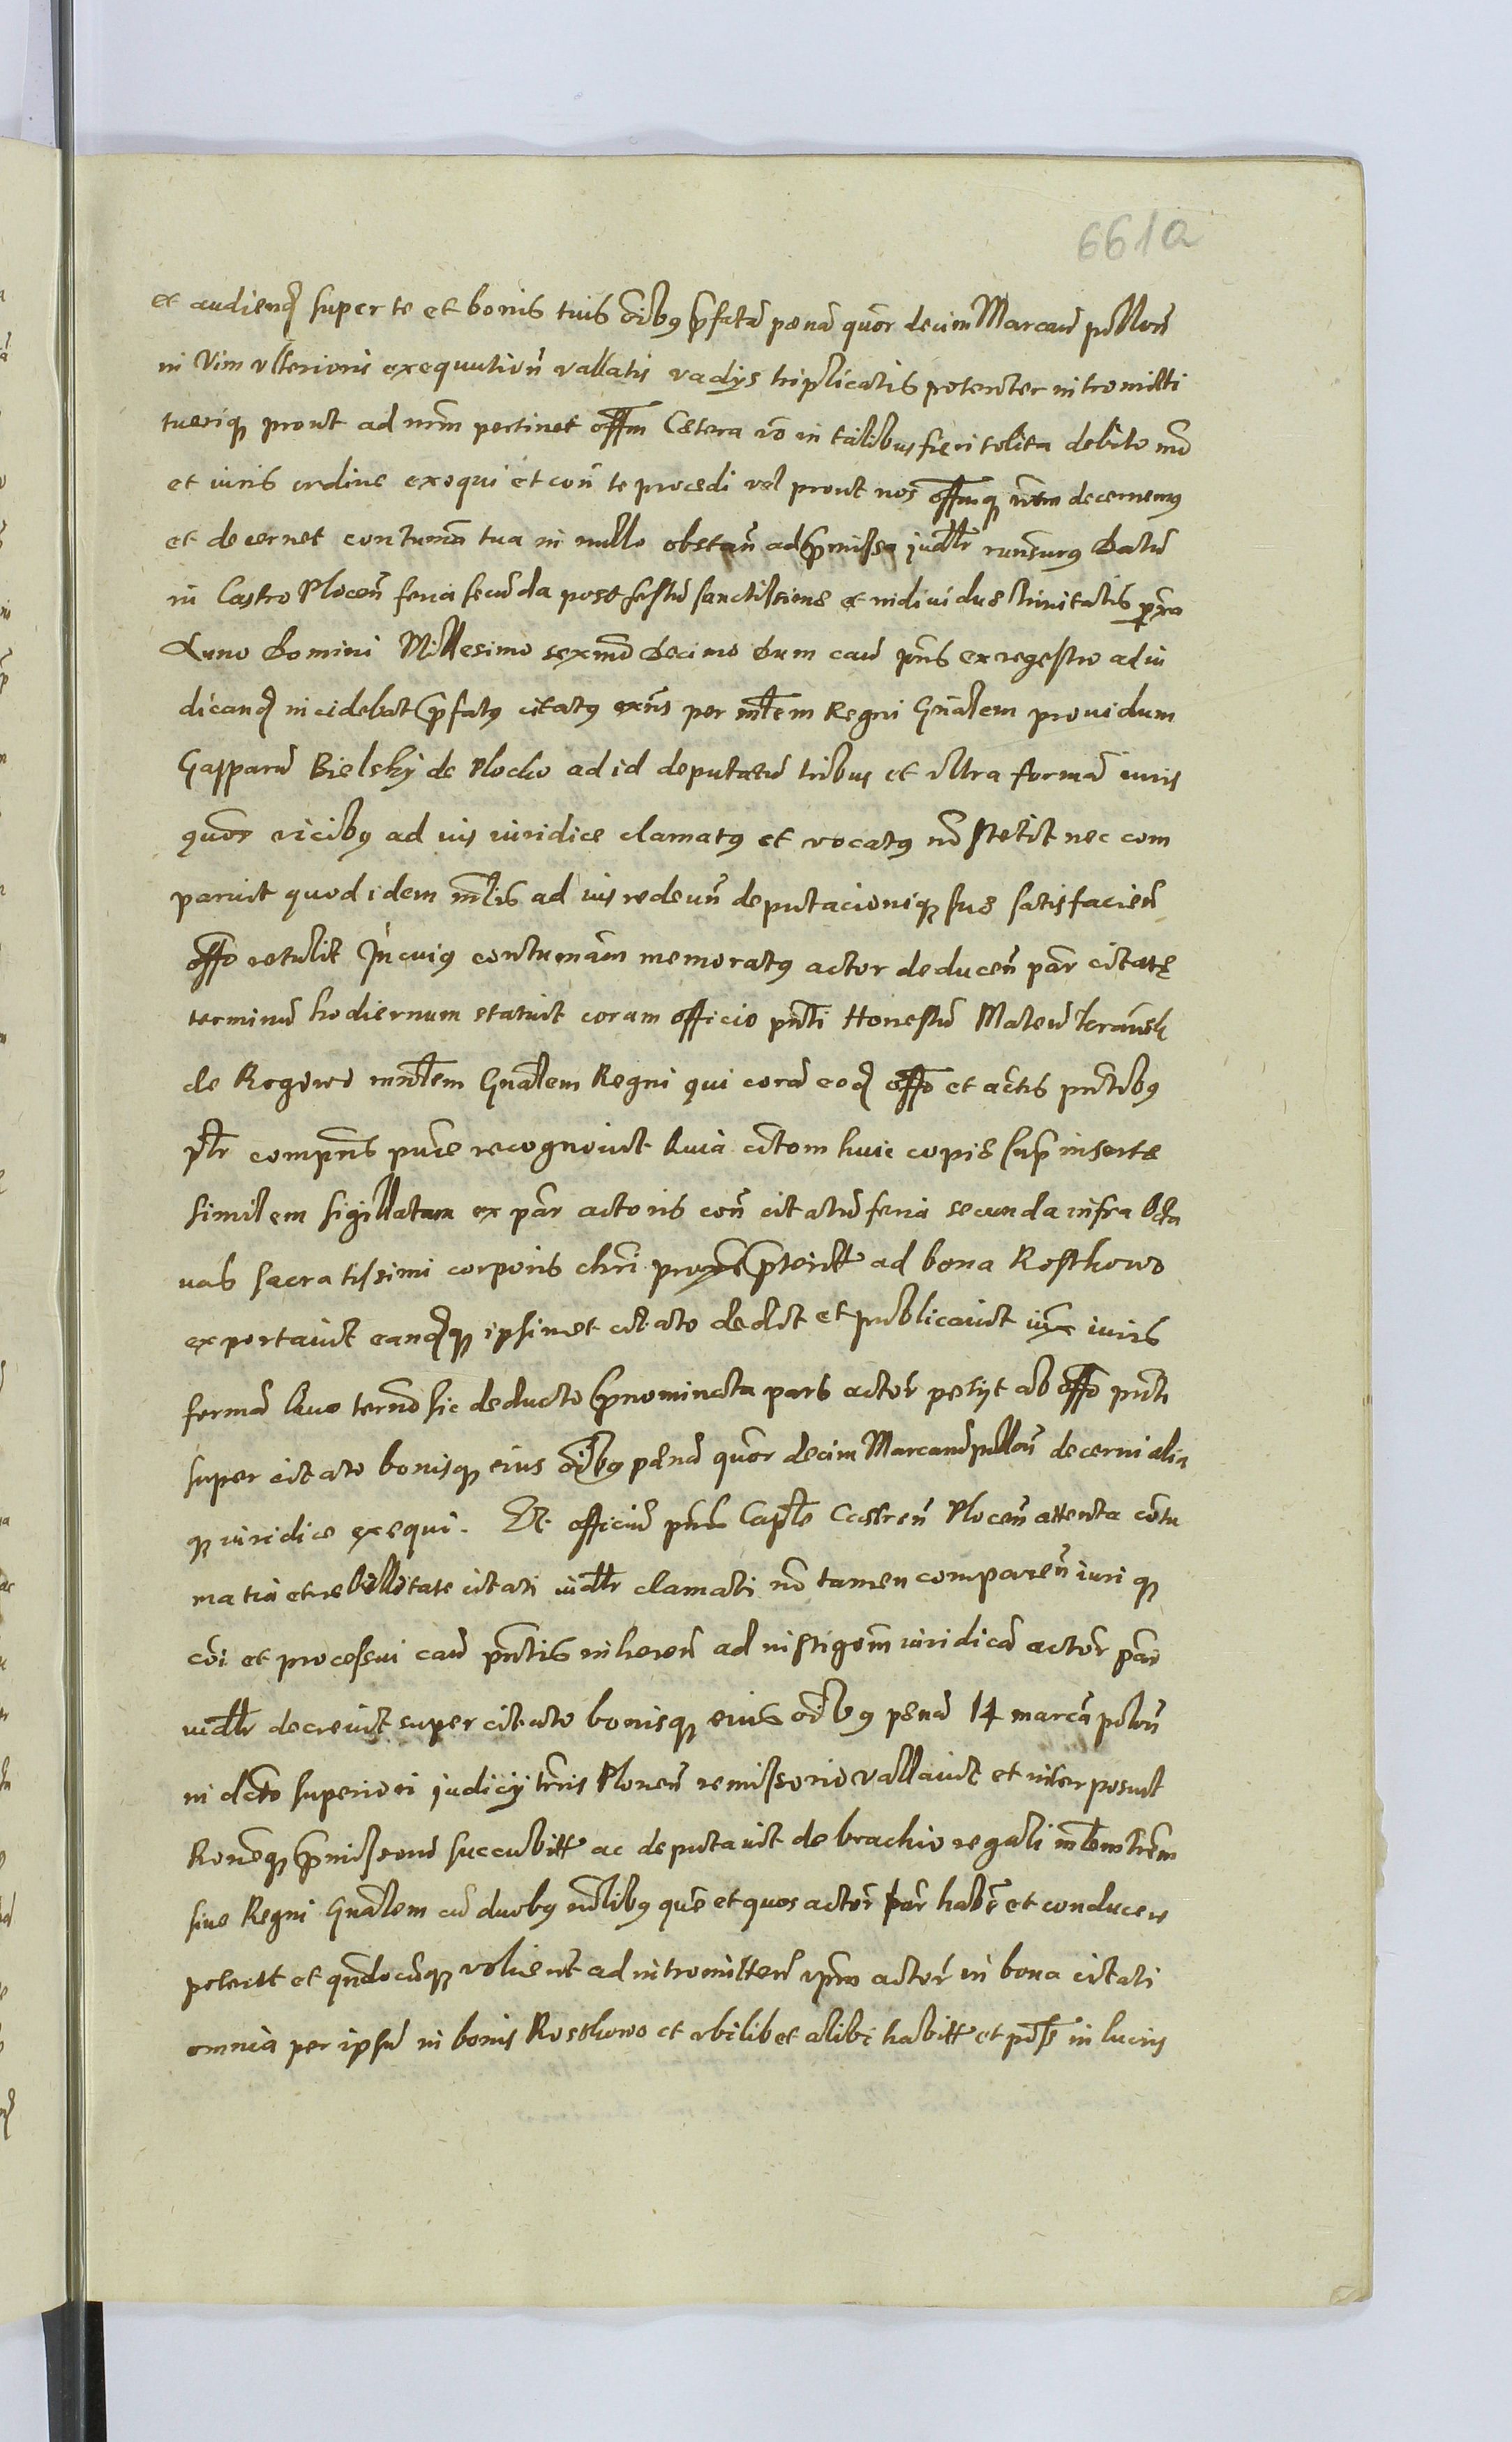 661a
et audiend super te et bonis tuis oibus pfata pena quor decim Marcaru pollon
in Vim ulterioris exequution vallatis vadys triplicatis potenter intromitti
tuerique prout ad nrm pertinet offm Cetera vo in talibus fieri solita debito mo
et iuris ordine exequi et con te procedi vel prout nos offmque nrm decernemus
et decernet contuma tua in nullo obstan ad pmissa judlr runsurus Datu
in Castro Plocen feria secunda post festu sanctissime et individue trinitatis prox
Anno Domini Millesimo sexmo decimo Dum cau pns ex regestro adiu
dicand incidebat pfatus citatus exns per mlem Regni Gnalem providum
Gasparu Bielsky de Plocko ad id deputatu tribus et ultra forma iuris
quor vicibus ad ius iuridice clamatus et vocatus no stetit nec com
paruit quod idem mlis ad ius redeun deputacionique sue satisfacien
offo retulit In cuius contumam memoratus actor deducen par citate
terminu hodiernum statuit coram officio pnti Honestu Mateu
de Rogowo mnlem Gnalem Regni qui cora eod offo et actis pntibus
plr compns pure recognovit Quia citom huic copie sup inserte
similem sigillatam ex par actoris con citatu feria secunda infra Octa
vas sacratissimi corporis chri proxe pterit ad bona Rosthowo
exportavit eandque ipsimet citato dedit et publicavit iux iuris
forma Quo termo sic deducto pnominata pars actor petyt ab offo pnti
super citato bonisque eius oibus pena quor decim Marcaru pollon decerni alia
que iuridice exequi. Et officiu pns Caple Castren Plocen attenta contu
matia et rebellitate citati iudlr clamati no tamen comparen iurique
coi et processui cau pntis inheren ad instigom iuridica actor par
iudlr decrevit super citato bonisque eius oibus pena 14 marca polon
in dcto superiori judicy trris Plocen remissorio vallavit et interposuit
Roneque pmissoru succubitt ac deputavit de brachio regali mlem trem
sive Regni Gnalem cu duobus nlibus que et quos actor par habe et conducere
poterit et qndocunque voluerit ad intromitten ipm actor in bona citati
omnia per ipsu in bonis Rosthowo et ubilibet alibi habitt et poss in lucris